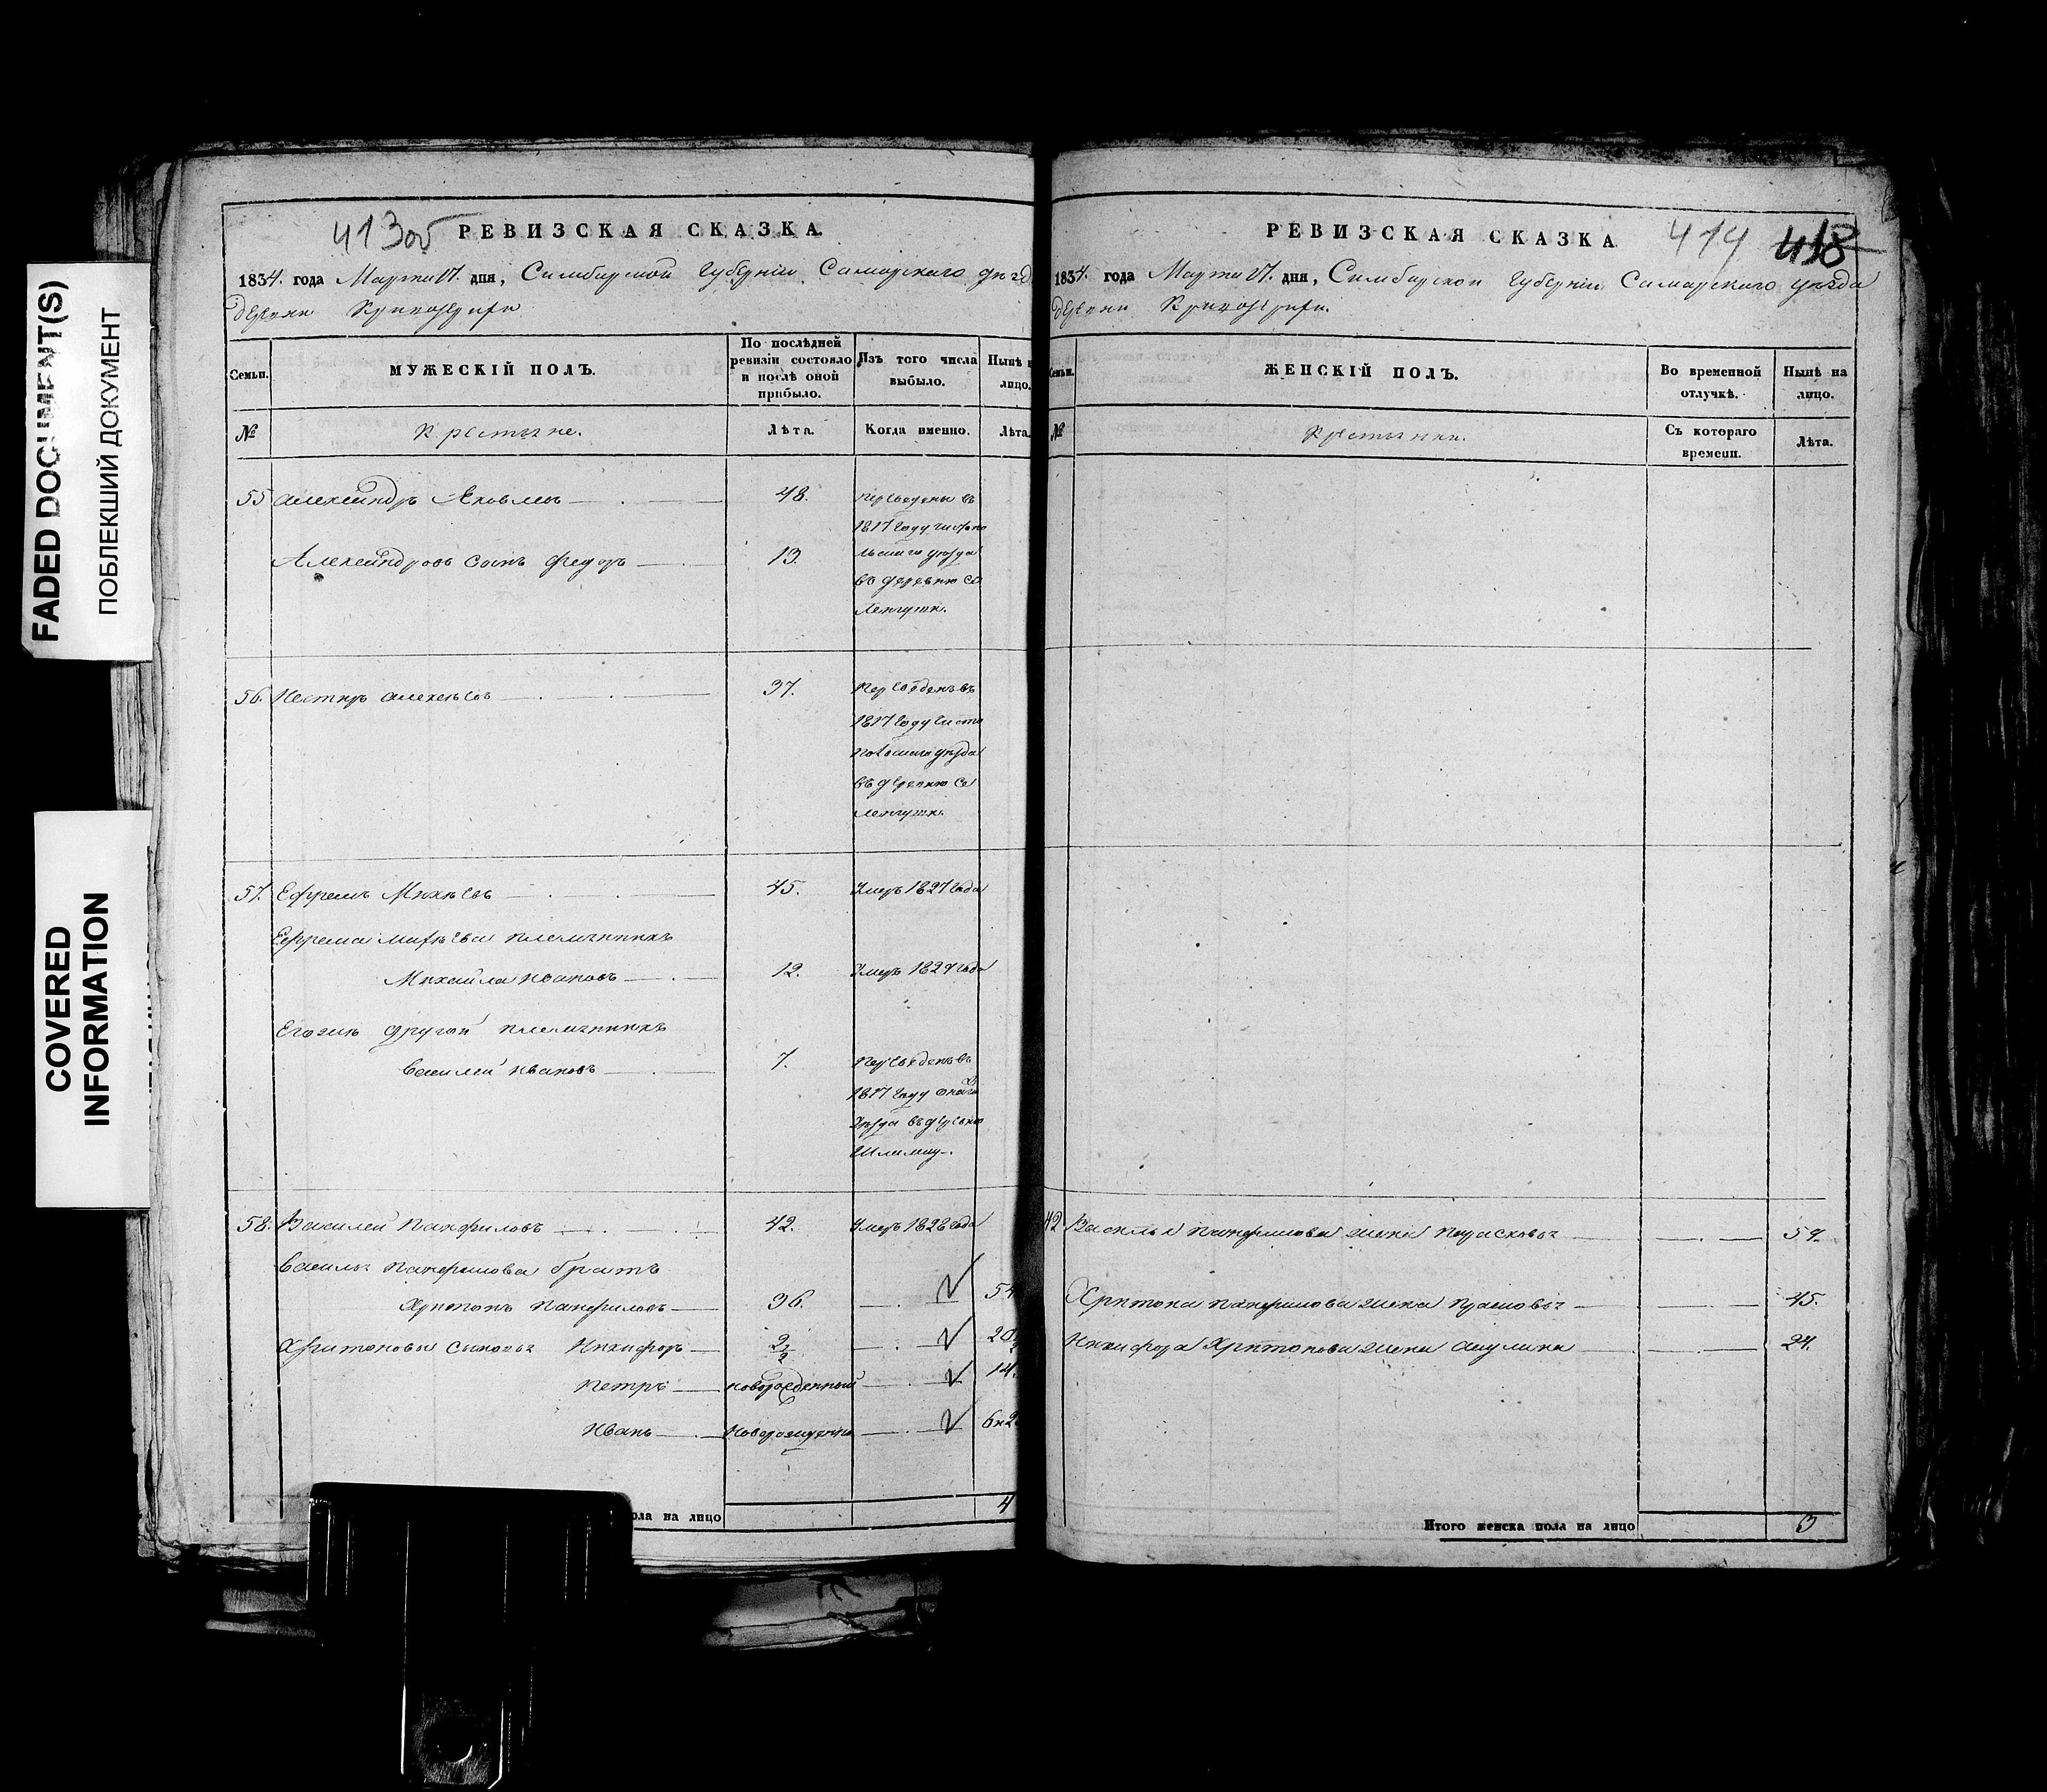 FADED DOCUMENT(S)
ПОБЛЕКШИЙ ДОКУМЕНТ
COVERED
INFORMATION
413об
РЕВИЗСКАЯ СКАЗКА
1834. года Марта 17. дня, Симбирской Губерніи Самарского уѣзд
деревни
Семьи.
МУЖЕСКІЙ ПОЛЪ.
По послѣдней ревизіи состояло и послѣ оной прибыло.
Изъ того числа выбыло.
Нынѣ н лицо.
№
Крестьяне.
Лѣта.
Когда именно.
Лѣта
55 Александръ Яковлевъ 48. переведены въ
1817 году
Александровъ сынъ Федоръ 13. уѣзда
въ деревню Се
56. Нестеръ Алексѣевъ 37. Переведенъ въ
1817 году
уѣзда
въ деревню Се
57. Ефремъ Михѣевъ 45. Умеръ 1827 года
Ефрема Михѣева племянникъ
Михайла Ивановъ 12. Умеръ 1827 года
Егожъ другой племянникъ
Василей Ивановъ 7. Переведенъ въ
1817 году
уѣзда въ деревню
58. Василей Панфиловъ 42. Умеръ 1828 года
Василья Панфилова братъ
Харитонъ Панфиловъ 36. 54
Харитоновы сыновья Никифоръ 2 1/2 20
Петръ новорожденный 14.
Иванъ Новорожденной 6
ола на лицо 4
РЕВИЗСКАЯ СКАЗКА
414 418
1834. года Марта 17. дня, Симбирской Губерніи Самарского уѣзда
деревни
Семьи.
ЖЕНСКІЙ ПОЛЪ.
Во временной отлучкѣ.
Нынѣ на лицо.
№
Крестьянки.
Съ котораго времени.
Лѣта.
42 Василья Панфилова жена Парасковья 59.
Харитона Панфилова жена 45.
Никифора Харитонова жена Акулина 24.
Итого женска пола на лицо 3